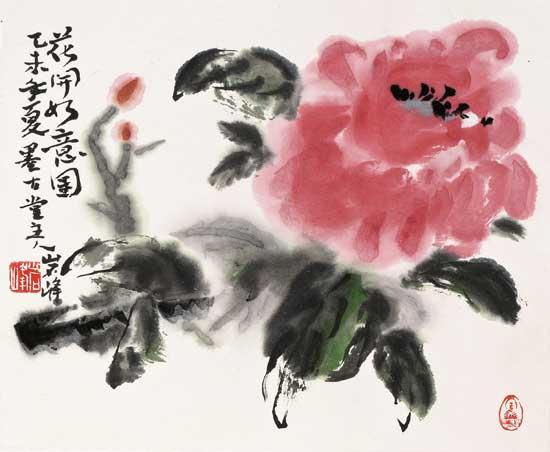 花開如意圖
乙未年夏墨古堂主人
岩峰